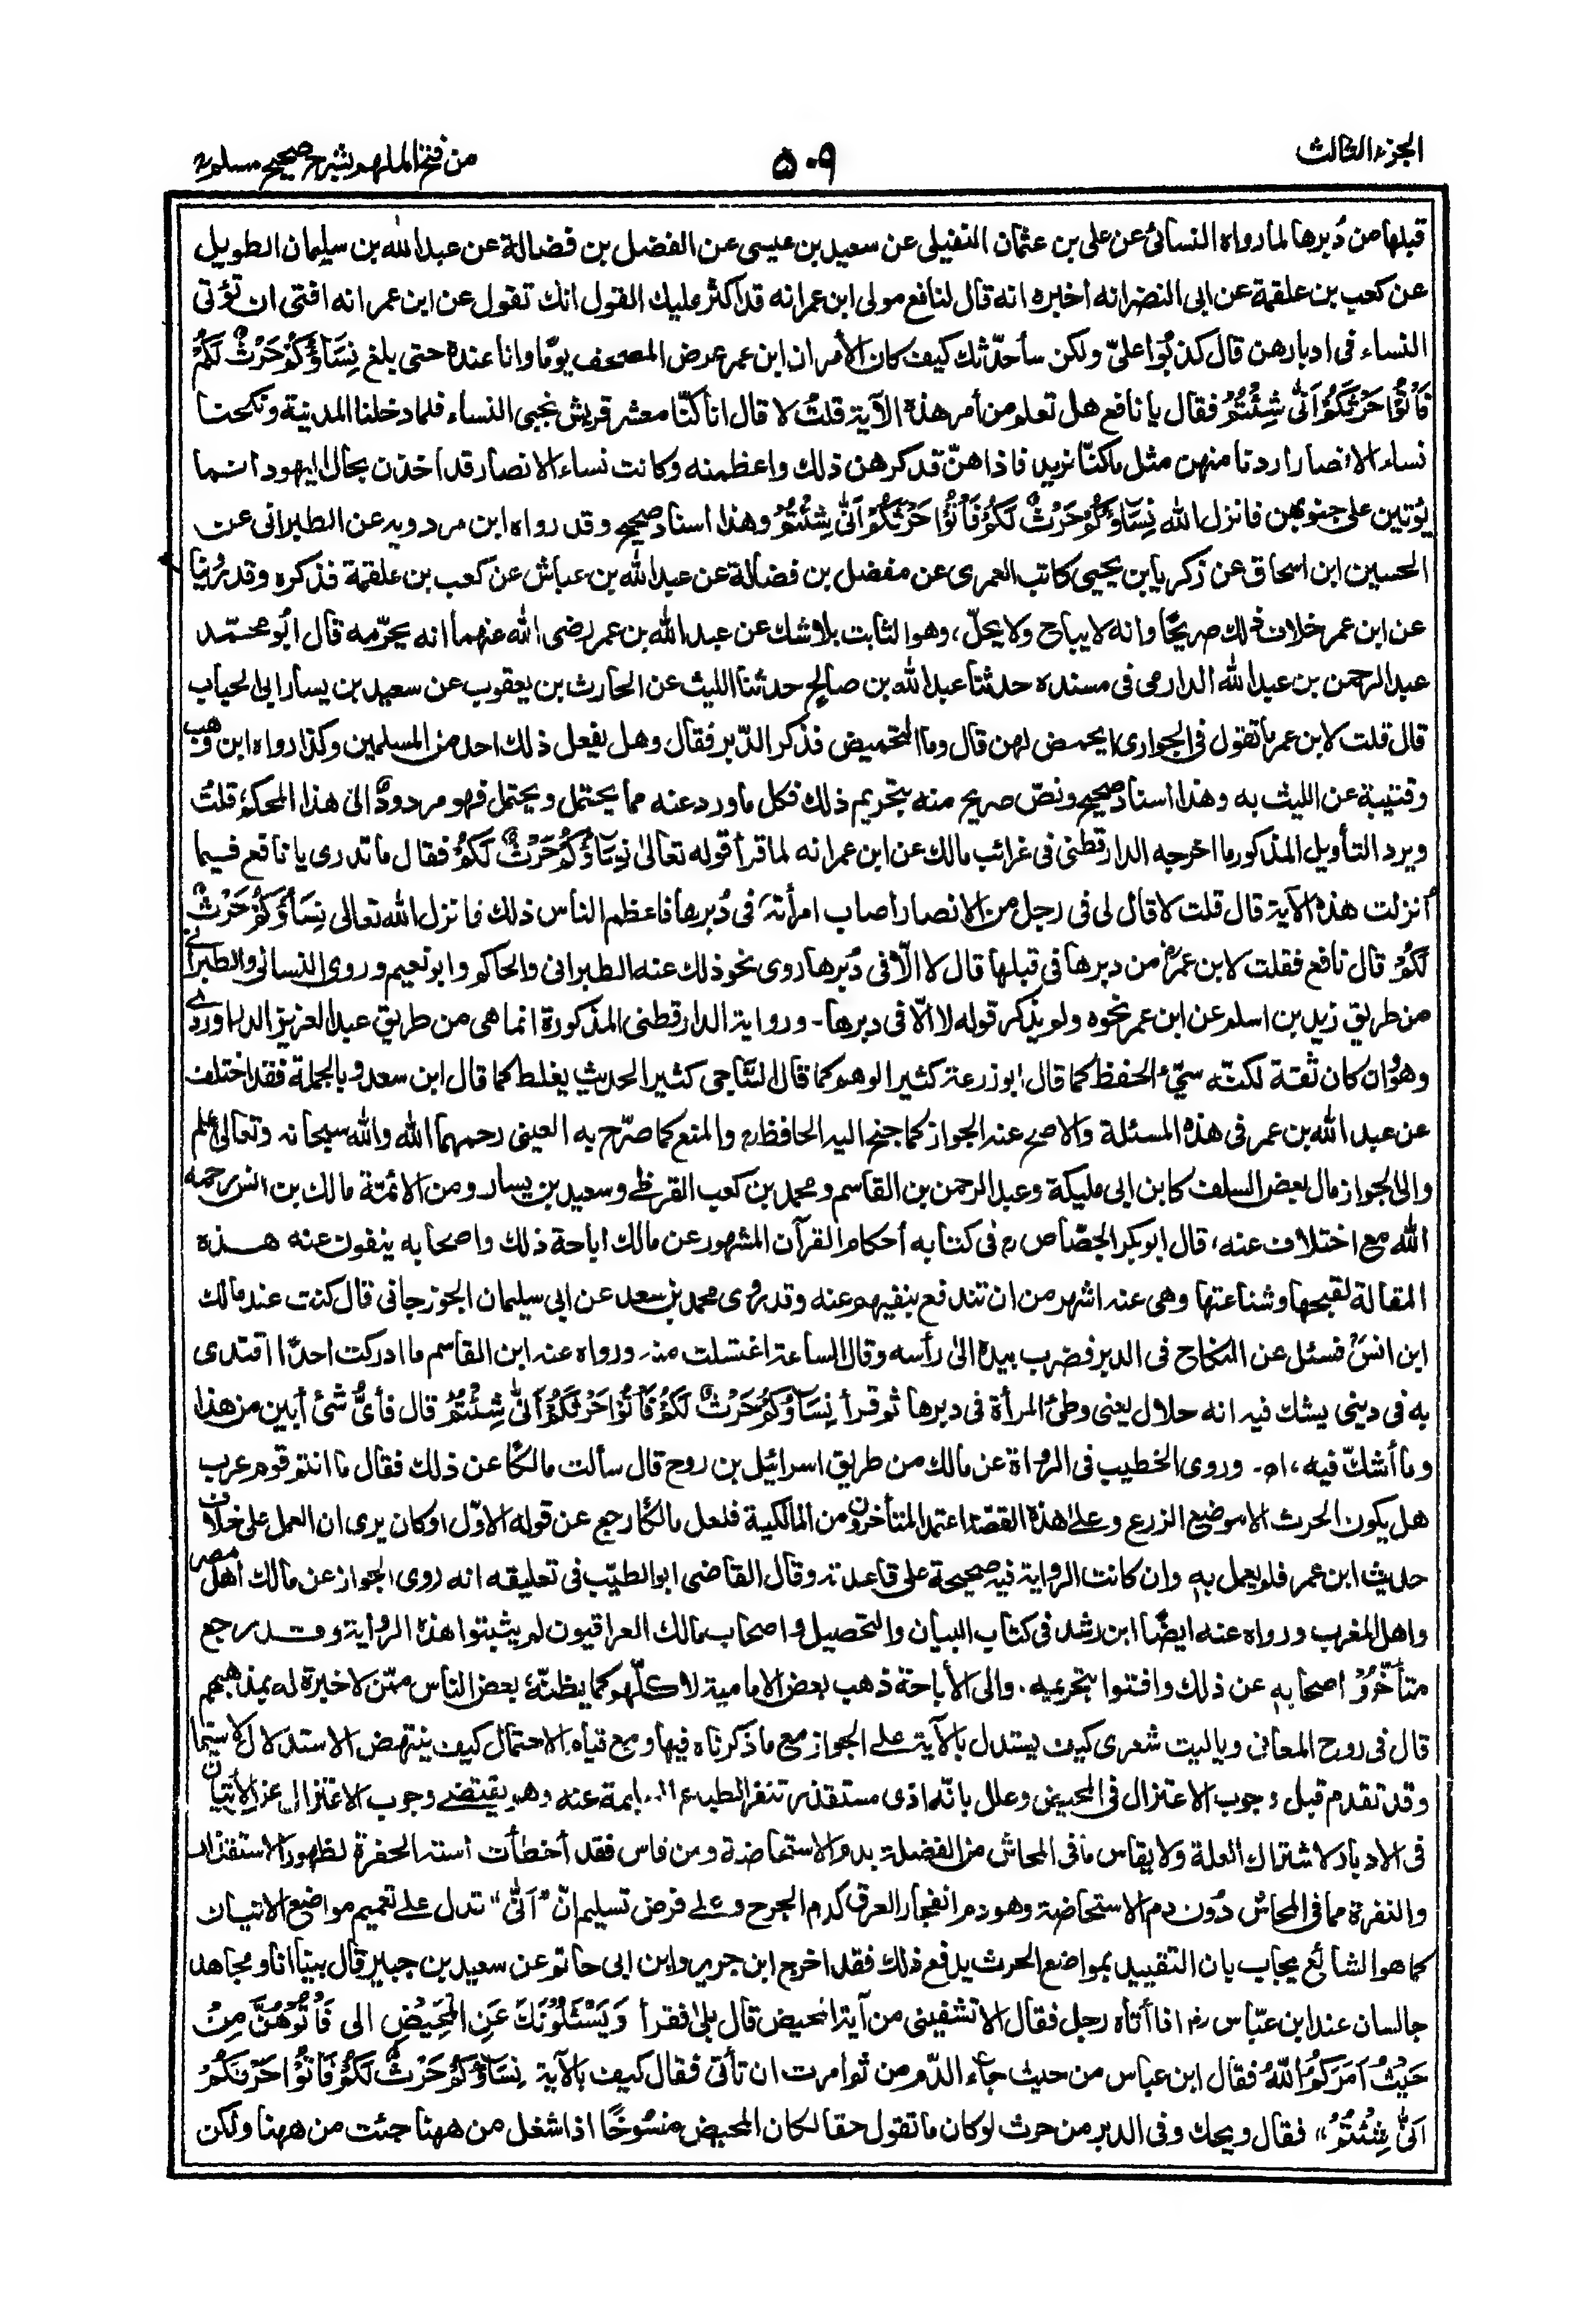 الجزء الثالث
٥٠٩
من فتح الملهم بشرح صحيح مسلم
قبلها من دُبرها لما رواه النسائى عن على بن عثمان النفيلى عن سعيد بن عيسى عن الفضل بن فضالة عن عبدالله بن سليمان الطويل
عن كعب بن علقمة عن ابى النضر انه أخبره انه قال لنافع مولى ابن عمر انه قد أكثر عليك القول انك تقول عن ابن عمر انه افتى ان تؤتى
النساء فى ادبارهن قال كذبوا علىّ ولكن سأحدّثك كيف كان الأمر ان ابن عمر عرض المصحف يومًا وانا عنده حتى بلغ نِسَاؤُكُمْ حَرْثٌ لَكُمْ
فَأْتُوْا حَرْثَكُمْ اَنّٰى شِئْتُمْ فقال يا نافع هل تعلم من أمر هذه الآية قلتُ لا قال انا كنّا معشر قريش نجبى النساء فلما دخلنا المدينة ونكحنا
نساء الانصار اردنا منهن مثل ما كنّا نريد فاذا هنّ قد كرهن ذلك واعظمنه وكانت نساء الانصار قد اخذن بحال اليهود انما
يؤتين على جنوبهن فانزل الله نِسَاؤُكُمْ حَرْثٌ لَكُمْ فَأْتُوْا حَرْثَكُمْ اَنّٰى شِئْتُمْ وهذا اسناد صحيح وقد رواه ابن مردويه عن الطبرانى عن
الحسين ابن اسحاق عن زكريا بن يحيى كاتب العمرى عن مفضل بن فضالة عن عبدالله بن عباش عن كعب بن علقمة فذكره وقد روينا
عن ابن عمر خلاف ذلك صريحًا وانه لا يباح ولا يحلّ، وهو الثابت بلا شك عن عبدالله بن عمر رضى الله عنهما انه يحرّمه قال ابُو محمّد
عبدالرحمن بن عبدالله الدارمى فى مسنده حدثنا عبدالله بن صالح حدثنا الليث عن الحارث بن يعقوب عن سعيد بن يسار ابى الحباب
قال قلت لابن عمر ما تقول فى الجوارى ايحمض لهن قال وما التحميض فذكر الدّبر فقال وهل يفعل ذلك احد من المسلمين وكذا رواه ابن وهب
وقتيبة عن الليث به وهذا اسناد صحيح ونصّ صريح منه بتحريم ذلك فكل ما ورد عنه مما يحتمل ويحتمل فهو مردودٌ الى هذا المحكم، قلتُ
ويرد التأويل المذكور ما اخرجه الدارقطنى فى غرائب مالك عن ابن عمر انه لما قرأ قوله تعالىٰ نِسَاؤُكُمْ حَرْثٌ لَكُمْ فقال ما تدرى يا نافع فيما
أنزلت هذه الآية قال قلت لا قال لى فى رجل من الانصار أصاب امرأته فى دُبرها فاعظم الناس ذلك فانزل الله تعالى نِسَاؤُكُمْ حَرْثٌ
لَكُمْ قال نافع فقلت لابن عمر من دبرها فى قبلها قال لا الّا فى دُبرها روى نحو ذلك عنه الطبرانى والحاكم وابو نعيم وروى النسائى والطبرانى
من طريق زيد بن اسلم عن ابن عمر نحوه ولم يذكر قوله لا الّا فى دبرها۔ ورواية الدارقطنى المذكورة انما هى من طريق عبدالعزيز الدراوردى
وهو ان كان ثقة لكنّه سىّء الحفظ كما قال ابو زرعة كثير الوهم كما قال السّاجى كثير الحديث يغلط كما قال ابن سعد وبالجملة فقد اختلف
عن عبدالله بن عمر فى هذه المسئلة والاصح عنه الجواز كما جنح اليه الحافظ او المنع كما صرّح به العينى رحمهما الله والله سبحانه وتعالى اعلم
والى الجواز مال بعض السلف كابن ابى مليكة وعبدالرحمن بن القاسم ومحمد بن كعب القرظى وسعيد بن يسار ومن الائمّة مالك بن انس رحمه
الله مع اختلاف عنه، قال ابو بكر الجصّاص فى كتابه أحكام القرآن المشهور عن مالك اباحة ذلك واصحابه ينفون عنه هذه
المقالة لقبحها وشناعتها وهى عنه اشهر من ان تندفع بنفيهم عنه وقد روى محمد بن سعد عن ابى سليمان الجوزجانى قال كنت عند مالك
ابن انس فسئل عن النكاح فى الدبر فضرب بيده الى رأسه وقال الساعة اغتسلت منه ورواه عنه ابن القاسم ما ادركت احدًا اقتدى
به فى دينى يشك فيه انه حلال يعنى وطئ المرأة فى دبرها ثم قرأ نِسَاؤُكُمْ حَرْثٌ لَكُمْ فَأْتُوْا حَرْثَكُمْ اَنّٰى شِئْتُمْ قال فأىُّ شئ أبين من هذا
وما أشكّ فيه، اھ۔ وروى الخطيب فى الرواة عن مالك من طريق اسرائيل بن روح قال سألت مالكًا عن ذلك فقال ما انتم قوم عرب
هل يكون الحرث الا موضع الزرع وعلى هذه القصّة اعتمد المتأخرون من المالكية فلعل مالكًا رجع عن قوله الاوّل او كان يرى ان العمل على خلاف
حديث ابن عمر فلم يعمل به وان كانت الرواية فيه صحيحة على قاعدته وقال القاضى ابو الطيّب فى تعليقه انه روى الجواز عن مالك اهل مصر
واهل المغرب ورواه عنه ايضًا ابن رشد فى كتاب البيان والتحصيل واصحاب مالك العراقيون لم يثبتوا هذه الرواية وقد رجع
متأخّرُو اصحابه عن ذلك وافتوا بتحريمه. والى الأباحة ذهب بعض الامامية لا كلّهم كما يظنّه بعض الناس ممّن لا خبرة له بمذهبهم
قال فى روح المعانى ويا ليت شعرى كيف يستدل بالآية على الجواز مع ما ذكرناه فيها ومع قيام الاحتمال كيف ينتهض الاستدلال لا سيما
وقد تقدم قبل وجوب الاعتزال فى المحيض وعلل بانّه اذى مستقذر تنفر الطباع السليمة عنه وهو يقتضى وجوب الاعتزال عن الاتيان
فى الادبار لاشتراك العلة ولا يقاس ما فى المحاش من الفضلة بدم الاستحاضة ومن قاس فقد أخطأت استه الحفرة لظهور الاستقذار
والنفرة مما فى المحاش دون دم الاستحاضة وهو دم انفجار العرق كدم الجرح وعلى فرض تسليم انّ "اَنّٰى" تدل على تعميم مواضع الاتيان
كما هو الشائع يجاب بان التقييد بمواضع الحرث يدفع ذلك فقد اخرج ابن جرير وابن ابى حاتم عن سعيد بن جبير قال بينا انا ومجاهد
جالسان عند ابن عبّاس اذ أتاه رجل فقال الا تشفينى من آية المحيض قال بلى فقرأ وَيَسْئَلُوْنَكَ عَنِ الْمَحِيْضِ الى فَأْتُوْهُنَّ مِنْ
حَيْثُ اَمَرَكُمُ اللّٰهُ فقال ابن عباس من حيث جاء الدّم من ثم امرت ان تأتى فقال كيف بالآية نِسَاؤُكُمْ حَرْثٌ لَكُمْ فَأْتُوْا حَرْثَكُمْ
اَنّٰى شِئْتُمْ" فقال ويحك وفى الدبر من حرث لو كان ما تقول حقا لكان المحيض منسُوخًا اذا شغل من ههنا جئت من ههنا ولكن